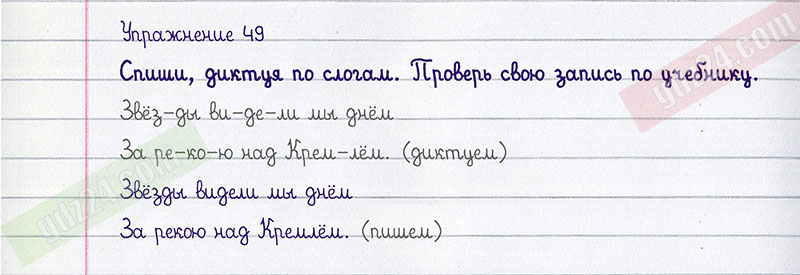 Упражнение 49
Спиши, диктуя по слогам. Проверь свою запись по учебнику.
Звёз-ды ви-де-ли мы днём
За ре-ко-ю над Крем-лём. (диктуем)
Звёзды видели мы днём
За рекою над Кремлём. (пишем)
gdz24.com
gdz24.com